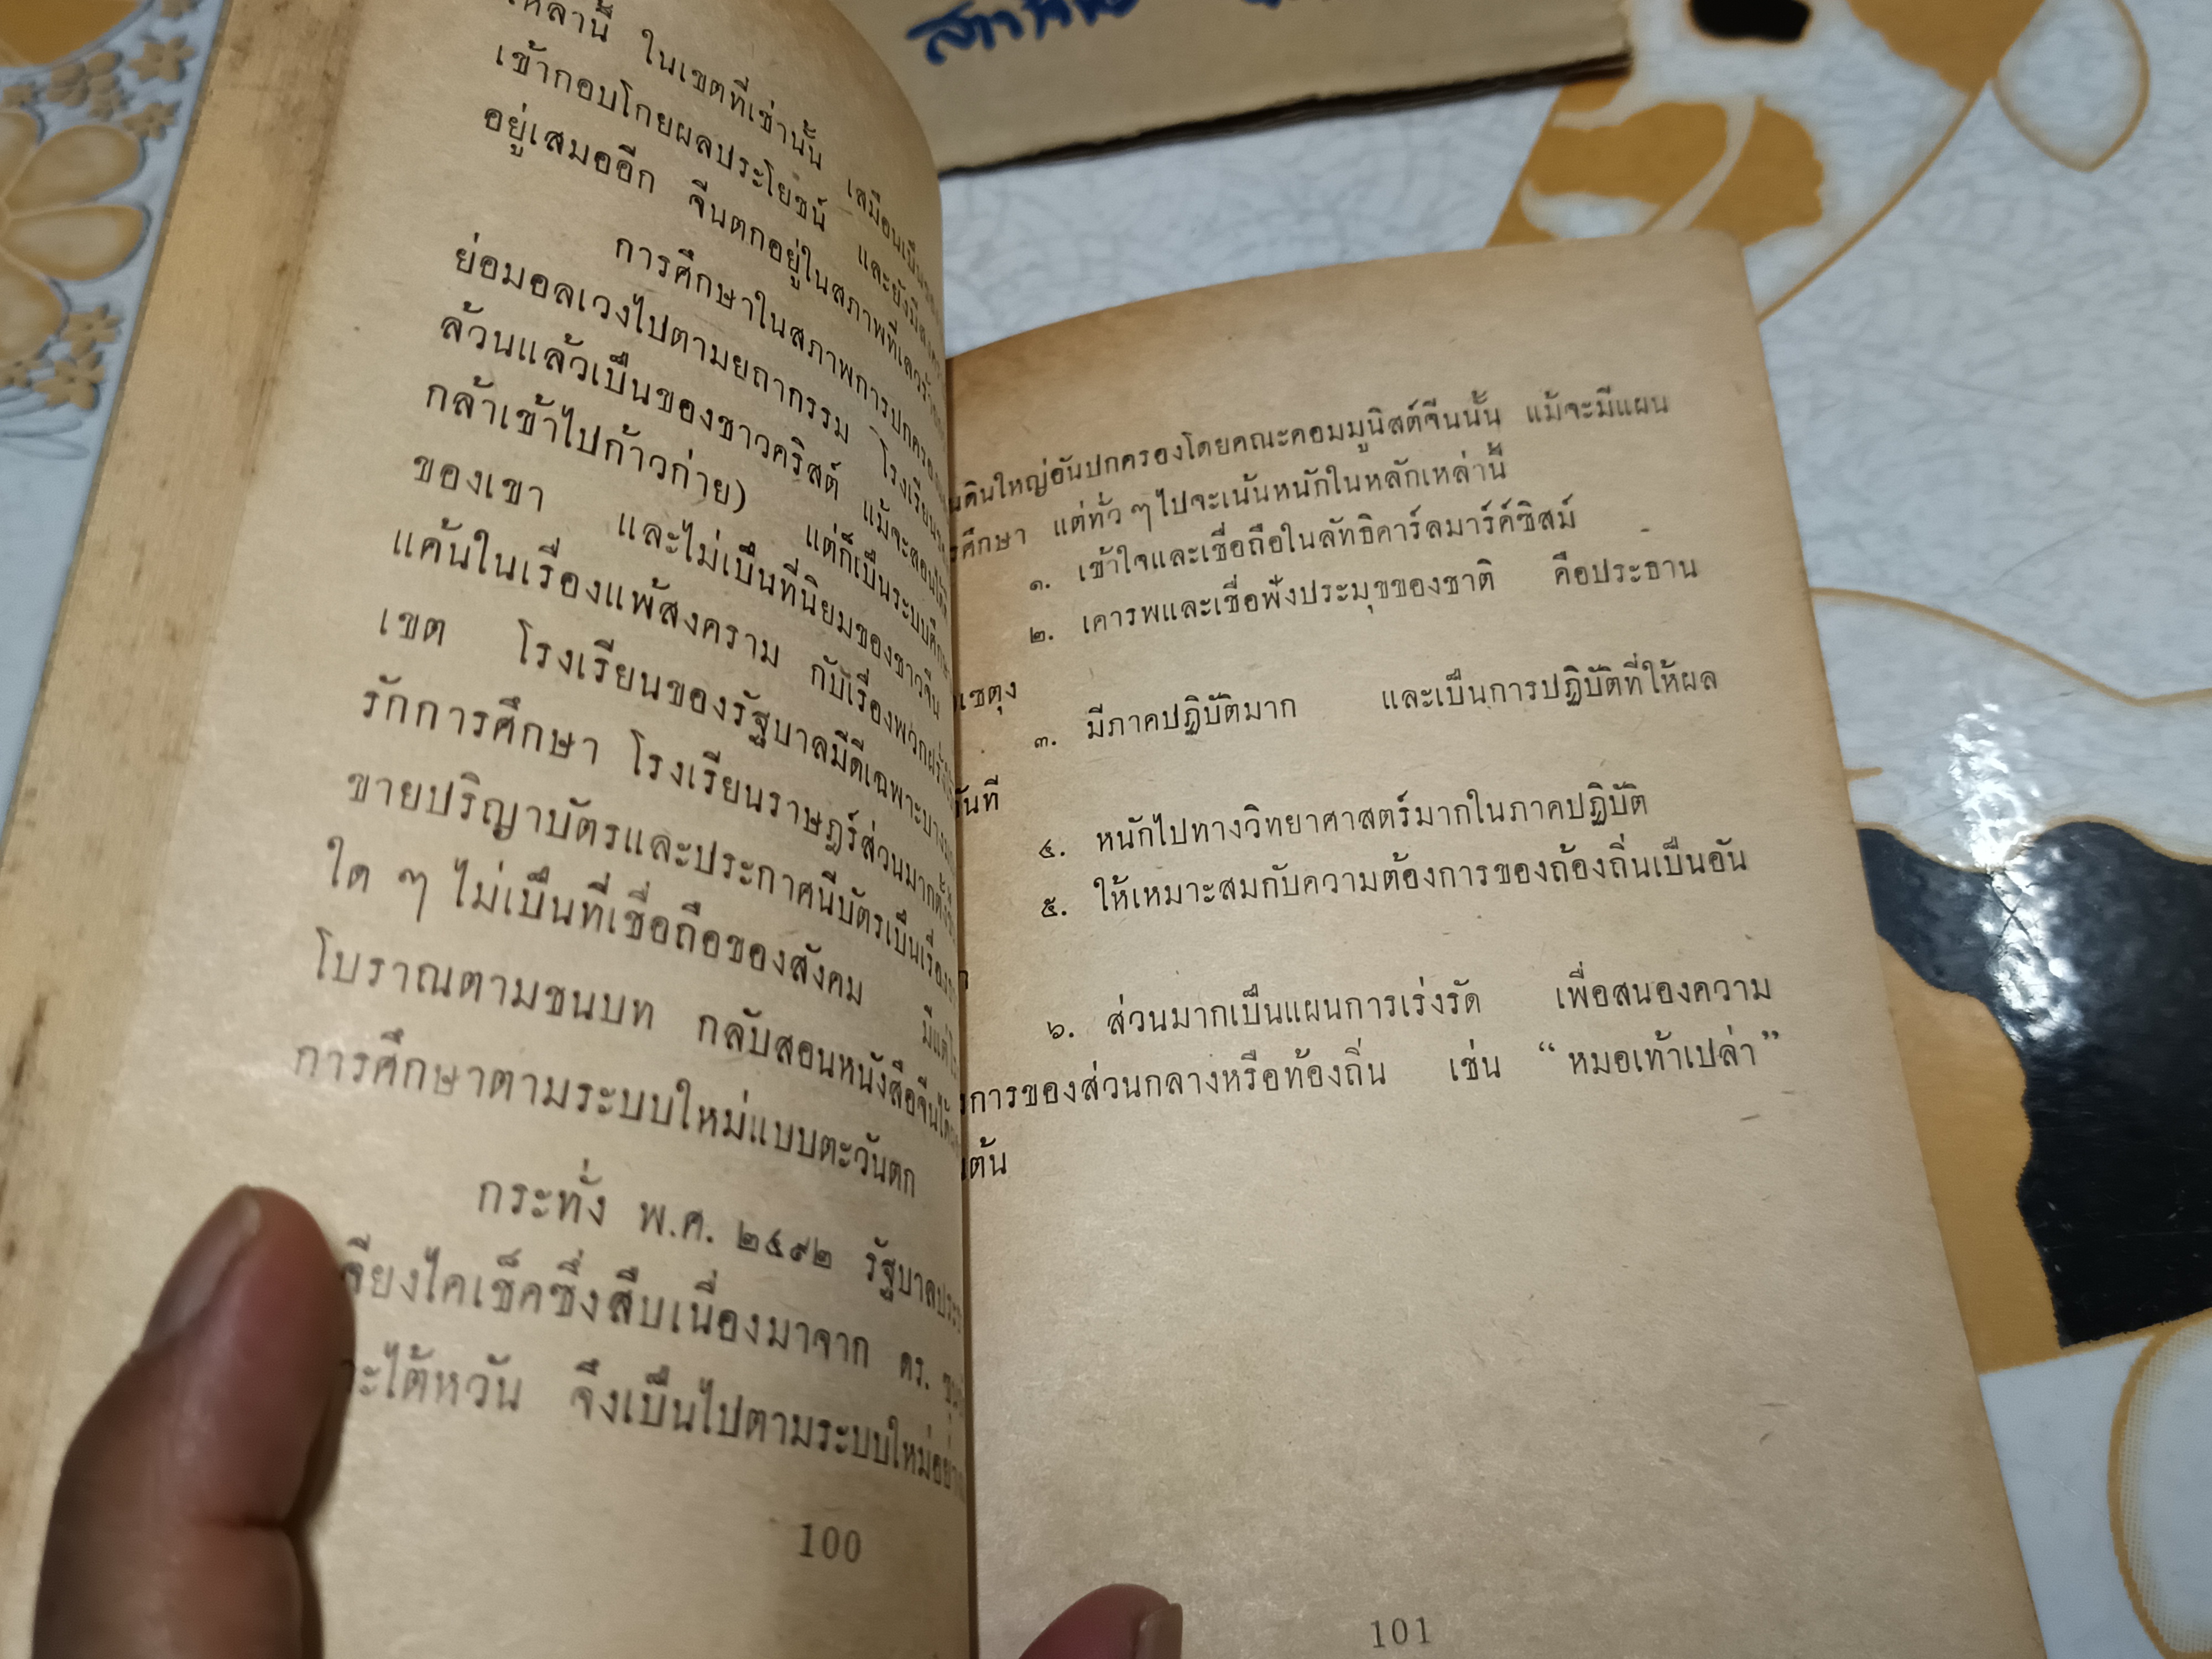 ในเขตที่เช่านั้น
เข้ากอบโกยผลประโยชน์ และยังมี
อยู่เสมออีก จีนตกอยู่ในสภาพที่เลวร้าย
การศึกษาในสภาพการปกครอง
ย่อมอลเวงไปตามยถากรรม โรงเรียน
ล้วนแล้วเป็นของชาวคริสต์ แม้จะสอนให้
กล้าเข้าไปก้าวก่าย) แต่ก็เป็นระบบศึกษา
ของเขา และไม่เป็นที่นิยมของชาวจีน
แค้นในเรื่องแพ้สงคราม กับเรื่องพวกฝรั่ง
เขต โรงเรียนของรัฐบาลมีดีเฉพาะบาง
รักการศึกษา โรงเรียนราษฎร์ส่วนมากตั้ง
ขายปริญาบัตรและประกาศนีบัตรเป็นเรื่อง
ใด ๆ ไม่เป็นที่เชื่อถือของสังคม มีแต่
โบราณตามชนบท กลับสอนหนังสือจีนได้
การศึกษาตามระบบใหม่แบบตะวันตก
กระทั่ง พ.ศ. ๒๔๙๒ รัฐบาล
เจียงไคเช็คซึ่งสืบเนื่องมาจาก ดร.
ไต้หวัน จึงเป็นไปตามระบบใหม่
100
ดินใหญ่อันปกครองโดยคณะคอมมูนิสต์จีนนั้น แม้จะมีแผน
ศึกษา แต่ทั่ว ๆ ไปจะเน้นหนักในหลักเหล่านี้
๑. เข้าใจและเชื่อถือในลัทธิคาร์ลมาร์ค์ซิสม์
๒. เคารพและเชื่อฟังประมุขของชาติ คือประธาน
เซตุง
๓. มีภาคปฏิบัติมาก และเป็นการปฏิบัติที่ให้ผล
ทันที
๔. หนักไปทางวิทยาศาสตร์มากในภาคปฏิบัติ
๕. ให้เหมาะสมกับความต้องการของถ้องถิ่นเป็นอัน
๖. ส่วนมากเป็นแผนการเร่งรัด เพื่อสนองความ
การของส่วนกลางหรือท้องถิ่น เช่น “หมอเท้าเปล่า”
ต้น
101